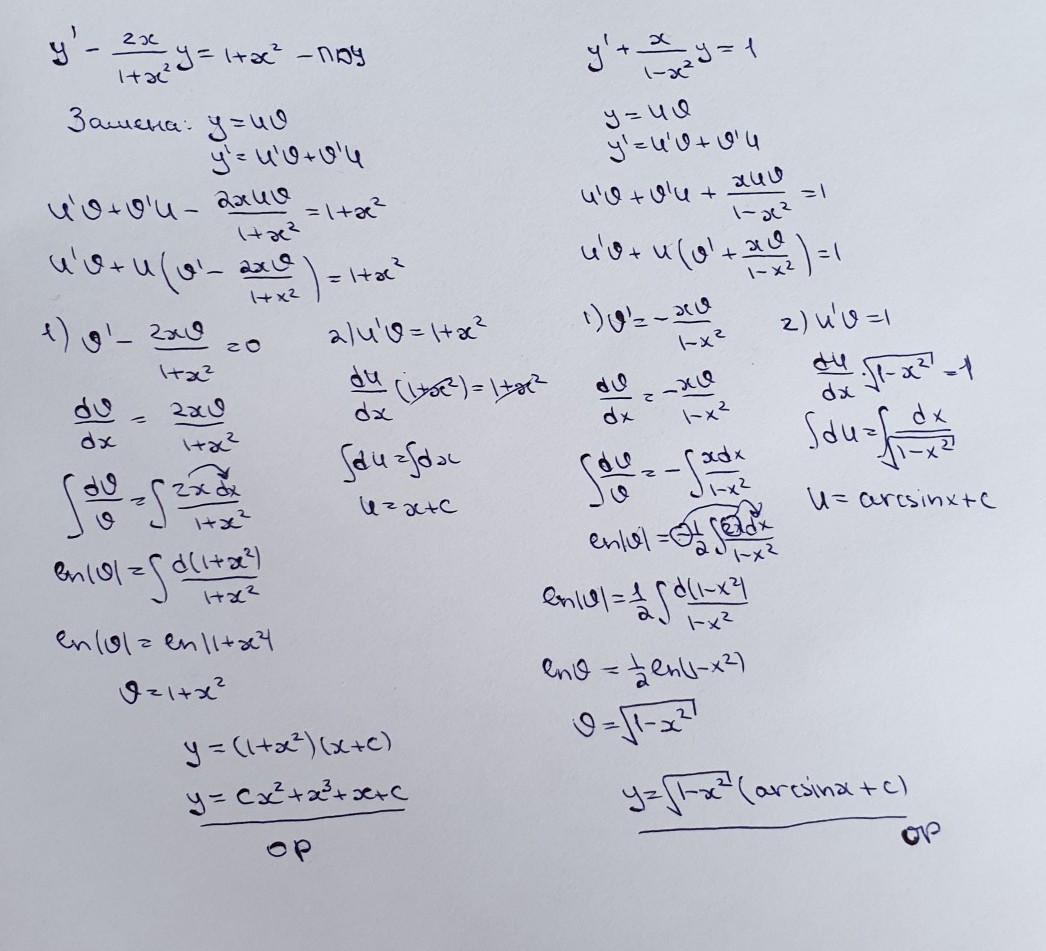 y' - 2x/(1+x²) y = 1+x² - ЛДУ
Замена: y = uϑ
y' = u'ϑ + ϑ'u
u'ϑ + ϑ'u - 2xuϑ/(1+x²) = 1+x²
u'ϑ + u(ϑ' - 2xϑ/(1+x²)) = 1+x²
1) ϑ' - 2xϑ/(1+x²) = 0
dϑ/dx = 2xϑ/(1+x²)
∫dϑ/ϑ = ∫2xdx/(1+x²)
ln|ϑ| = ∫d(1+x²)/(1+x²)
ln|ϑ| = ln|1+x²|
ϑ = 1+x²
2) u'ϑ = 1+x²
du/dx (1+x²) = 1+x²
∫du = ∫dx
u = x+c
y = (1+x²)(x+c)
y = cx² + x³ + x + c
ОР
y' + x/(1-x²) y = 1
y = uϑ
y' = u'ϑ + ϑ'u
u'ϑ + ϑ'u + xuϑ/(1-x²) = 1
u'ϑ + u(ϑ' + xϑ/(1-x²)) = 1
1) ϑ' = - xϑ/(1-x²)
dϑ/dx = - xϑ/(1-x²)
∫dϑ/ϑ = - ∫xdx/(1-x²)
ln|ϑ| = - 1/2 ∫2xdx/(1-x²)
ln|ϑ| = 1/2 ∫d(1-x²)/(1-x²)
lnϑ = 1/2 ln(1-x²)
ϑ = √(1-x²)
2) u'ϑ = 1
du/dx √(1-x²) = 1
∫du = ∫dx/√(1-x²)
u = arcsinx + c
y = √(1-x²) (arcsinx + c)
ОР